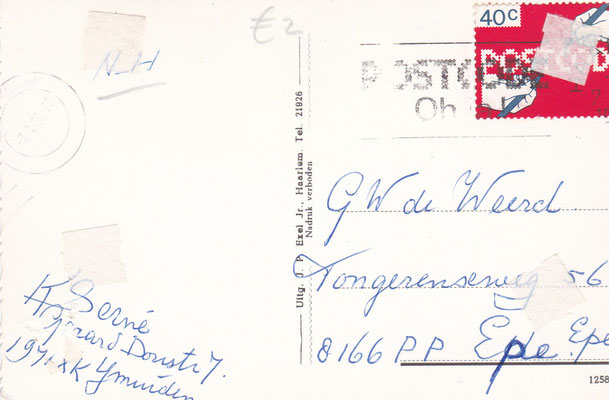 € 2
N-H
40c
POSTCODE
POSTCODE
Uitg. J. P. Exel Jr., Haarlem. Tel. 21926
Nadruk verboden
G W de Weerd
Tongerenseweg 56
8166 PP Epe. Epe
K Serné
Gerard Doustr 7.
197 XK Ymuiden
1258